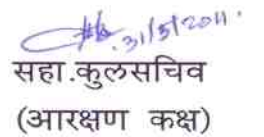 31/5/2011.
सहा.कुलसचिव
(आरक्षण कक्ष)